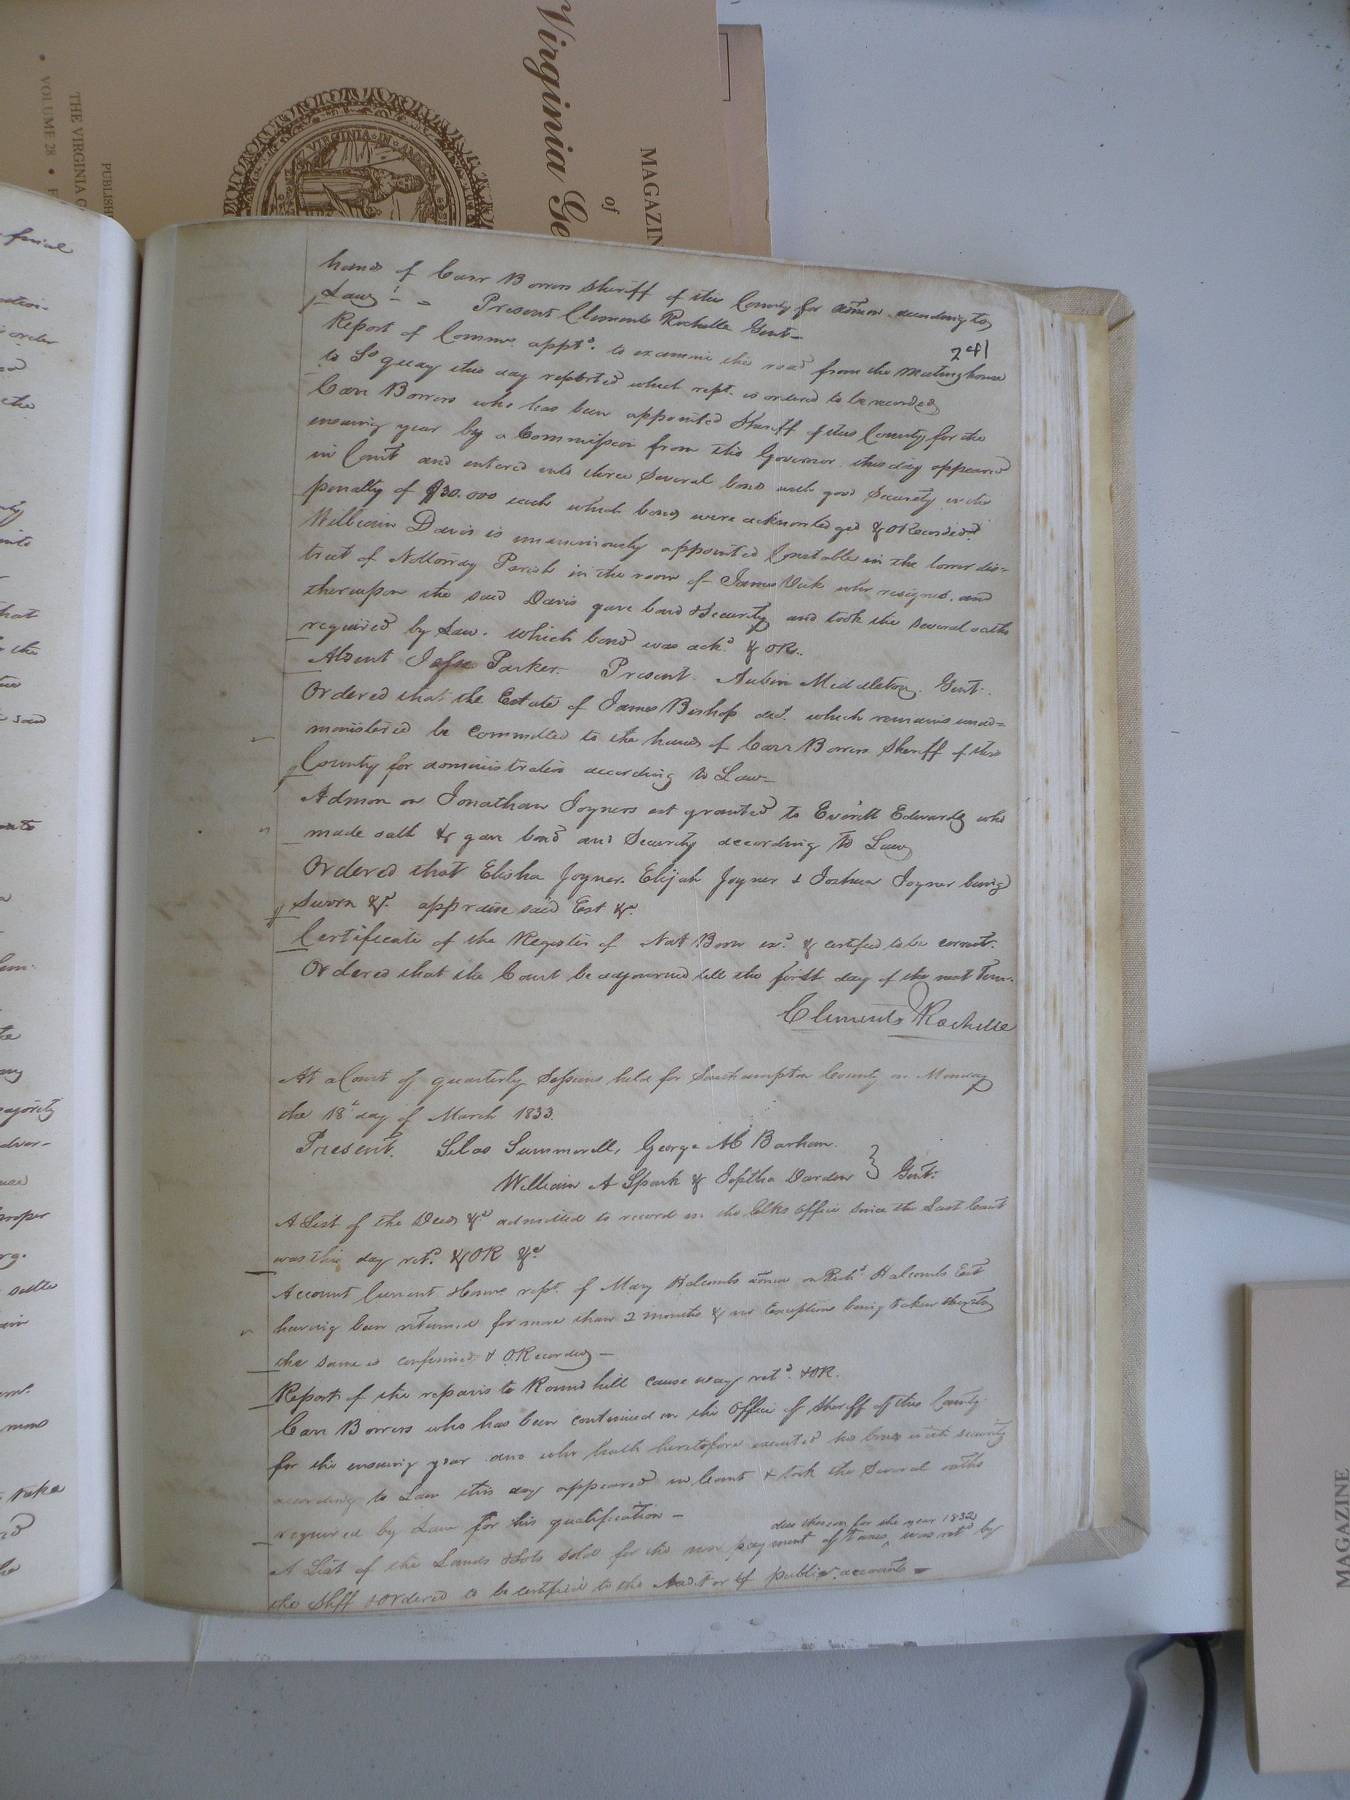 Virginia Ge
of
MAGAZIN
PUBLISH
THE VIRGINIA G
• VOLUME 28 •
VIRGINIA
MAGAZINE
241
hands of Carr Bowers Sheriff of this County for admon. according to
Law — Present Clements Rochelle Gent—
Report of Commrs. apptd. to examine the road from the Meetinghouse
to Sqquay this day reported which rept. is ordered to be recorded
Carr Bowers who has been appointed Sheriff of this County for the
ensuing year by a Commission from the Governor this day appeared
in Court and entered into three several bonds with good Security in the
penalty of $30.000 each which bonds were acknowledged & ORecorded
William Davis is unanimously appointed Constable in the lower dis=
trict of Nottoway Parish in the room of James Vick who resigned. and
thereupon the said Davis gave bond & Security and took the several oaths
required by Law. which bond was ackd. & OR.
Absent Jesse Parker. Present. Aubin Middleton. Gent.
Ordered that the Estate of James Bishop decd. which remains unad=
ministered be committed to the hands of Carr Bowers Sheriff of this
County for administration according to Law—
Admon on Jonathan Joyners est granted to Everitt Edwards who
made oath & gave bond and Security according to Law
Ordered that Elisha Joyner. Elijah Joyner & Joshua Joyner being
Sworn &c. appraise said Est &c.
Certificate of the Register of Nat Born exd. & certified to be correct.
Ordered that the Court be adjourned till the first day of the next Term.
Clements Rochelle
At a Court of quarterly Sessions held for Southampton County on Monday
the 18th day of March 1833.
Present. Silas Summerell, George M Barham.
William A Spark & Jeptha Darden } Gent:
A List of the Deeds &c admitted to record in the Clks office since the Last Court
was this day retd. & OR &c
Account Current & Comrs rept. of Mary Halcombs admx on Richd. Halcombs Est
having been returned for more than 2 months & no Exceptions being taken thereto
the same is confirmed & ORecorded—
Report of the repairs to Round hill cause way retd. & OR.
Carr Bowers who has been continued in the Office of Sheriff of this County
for the ensuing year and who hath heretofore executed his bonds with security
according to Law this day appeared in Court & took the several oaths
required by Law for his qualification —
due thereon for the year 1832
A List of the Lands & Lots sold for the non payment of Taxes ^ was retd by
the Shff & Ordered to be certified to the Auditor of public accounts —